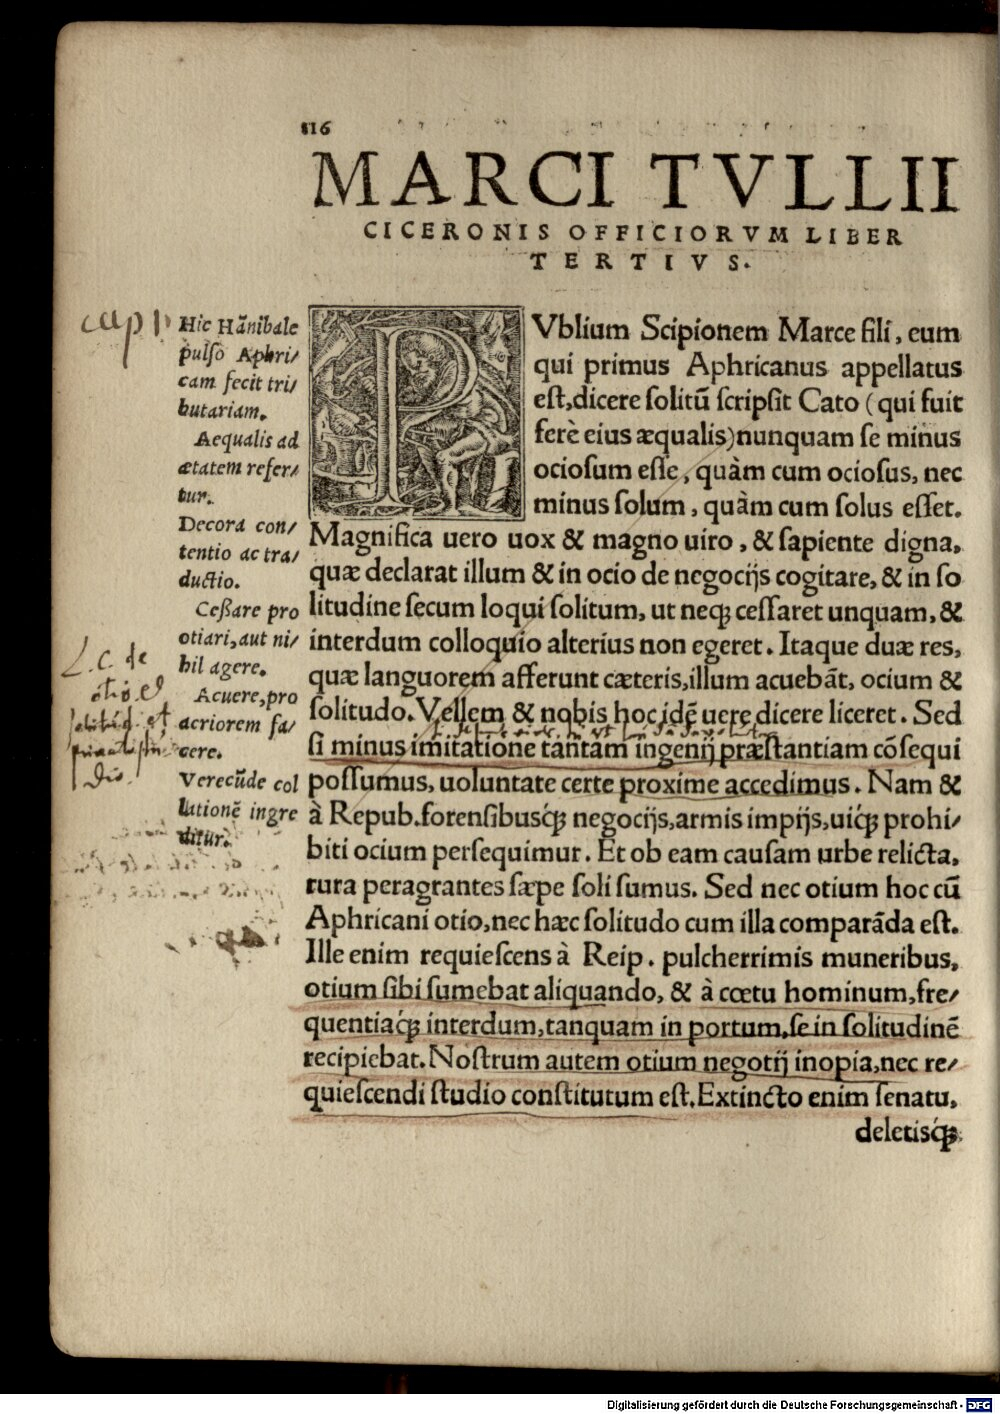 116
MARCI TVLLII
CICERONIS OFFICIORVM LIBER
TERTIVS.
cap 1
Hic Hānibale
pulso Aphri/
cam fecit tri/
butariam.
Aequalis ad
ætatem refer/
tur.
Decora con/
tentio ac tra/
ductio.
Ceßare pro
otiari, aut ni/
hil agere.
Acuere, pro
acriorem fa/
cere.
Verecūde col
lationē ingre
ditur.
L. C. de
otio et
PVblium Scipionem Marce fili, eum
qui primus Aphricanus appellatus
est, dicere solitū scripsit Cato (qui fuit
ferè eius æqualis) nunquam se minus
ociosum esse, quàm cum ociosus, nec
minus solum, quàm cum solus esset.
Magnifica uero uox & magno uiro, & sapiente digna,
quæ declarat illum & in ocio de negocijs cogitare, & in so
litudine secum loqui solitum, ut neq; cessaret unquam, &
interdum colloquio alterius non egeret. Itaque duæ res,
quæ languorem afferunt cæteris, illum acuebāt, ocium &
solitudo. Vellem & nobis hoc idē uere dicere liceret. Sed
si minus imitatione tantam ingenij præstantiam cōsequi
possumus, uoluntate certe proxime accedimus. Nam &
à Repub. forensibusq́; negocijs, armis impijs, uiq́; prohi/
biti ocium persequimur. Et ob eam causam urbe relicta,
rura peragrantes sæpe soli sumus. Sed nec otium hoc cū
Aphricani otio, nec hæc solitudo cum illa comparāda est.
Ille enim requiescens à Reip. pulcherrimis muneribus,
otium sibi sumebat aliquando, & à cœtu hominum, fre/
quentiaq́; interdum, tanquam in portum, se in solitudinē
recipiebat. Nostrum autem otium negotij inopia, nec re/
quiescendi studio constitutum est. Extincto enim senatu,
deletisq́;
Digitalisierung gefördert durch die Deutsche Forschungsgemeinschaft - DFG